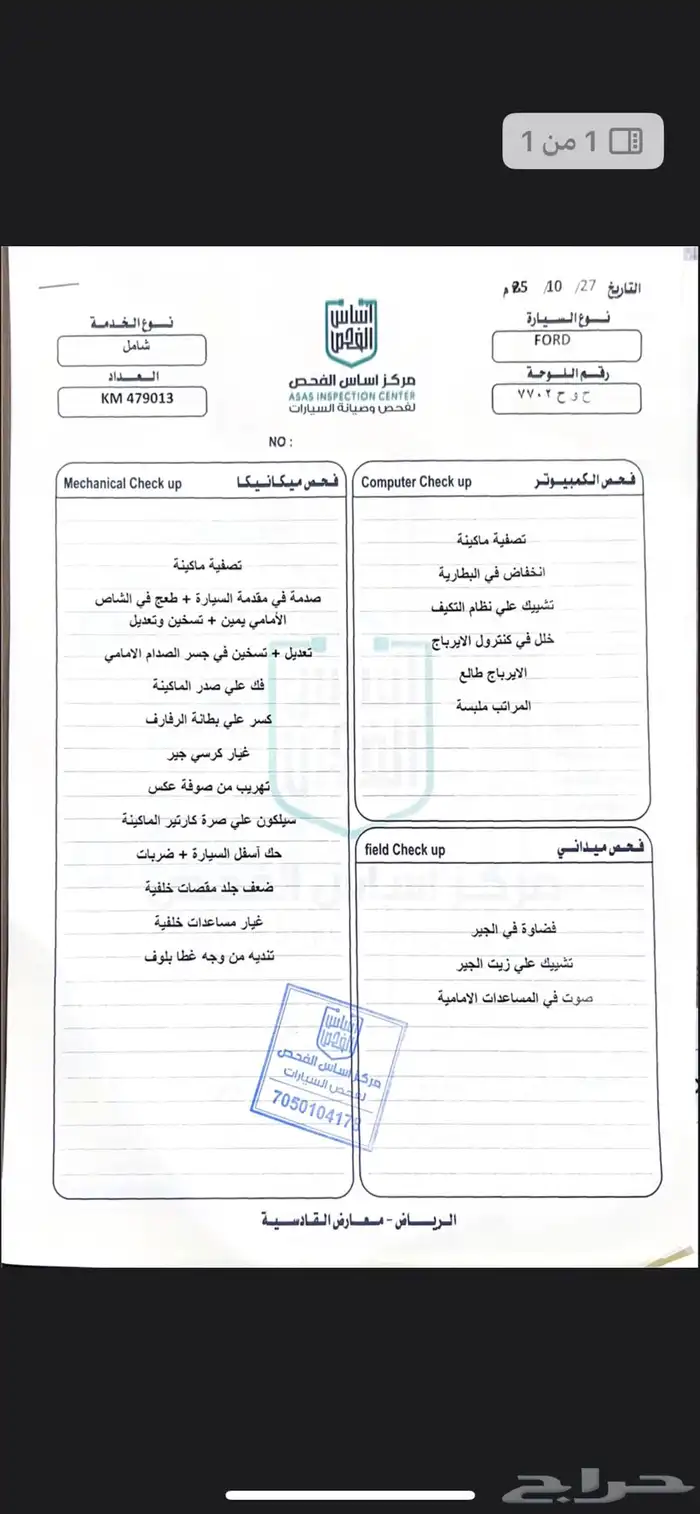 1 من 1
التاريخ 27/ 10/ 25 م
نوع السيارة
FORD
رقم اللوحة
ح و ح ٧٧٠٢
اساس الفحص
مركز اساس الفحص
ASAS INSPECTION CENTER
لفحص وصيانة السيارات
نوع الخدمة
شامل
العداد
KM 479013
NO :
فحص الكمبيوتر Computer Check up
تصفية ماكينة
انخفاض في البطارية
تشييك علي نظام التكيف
خلل في كنترول الايرباج
الايرباج طالع
المراتب ملبسة
فحص ميكانيكا Mechanical Check up
تصفية ماكينة
صدمة في مقدمة السيارة + طعج في الشاص
الأمامي يمين + تسخين وتعديل
تعديل + تسخين في جسر الصدام الامامي
فك علي صدر الماكينة
كسر علي بطانة الرفارف
غيار كرسي جير
تهريب من صوفة عكس
سيلكون علي صرة كارتير الماكينة
حك أسفل السيارة + ضربات
ضعف جلد مقصات خلفية
غيار مساعدات خلفية
تنديه من وجه غطا بلوف
فحص ميداني field Check up
فضاوة في الجير
تشييك علي زيت الجير
صوت في المساعدات الامامية
اساس الفحص
مركز اساس الفحص
لفحص السيارات
الرياض - معارض القادسية
حراج